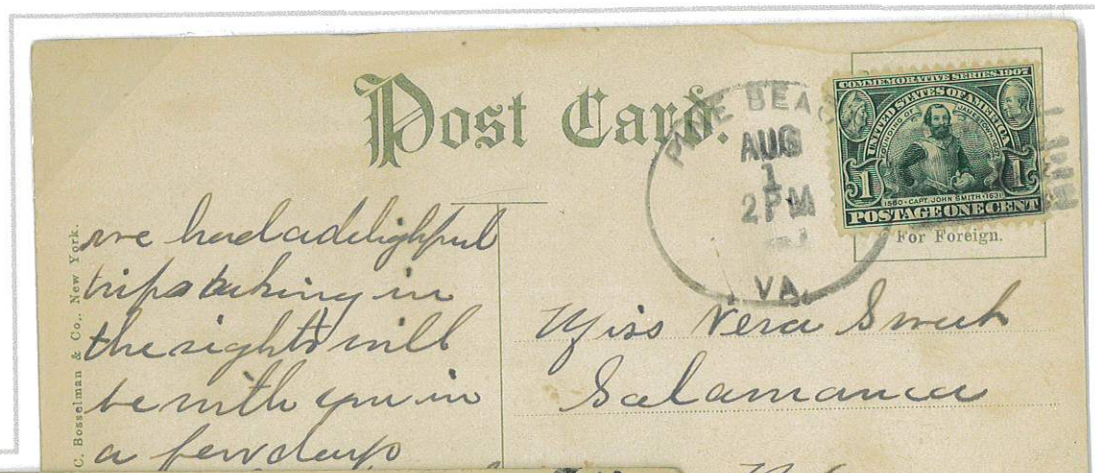 Post Card.
PINE BEACH
AUG
1
2 PM
VA.
COMMEMORATIVE SERIES 1907
UNITED STATES OF AMERICA
FOUNDING OF JAMESTOWN
1
1
1580 · CAPT. JOHN SMITH · 1631
POSTAGE ONE CENT
For Foreign.
C. Bosselman & Co., New York.
we had a delighful
trip & taking in
the sights will
be with you in
a few days
Miss Vera
Salamanca